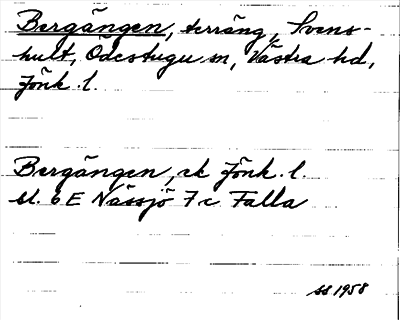 Bergängen, terräng, Svens-
hult, Ödestugu sn, Västra hd,
Jönk. l.
Bergängen, ek Jönk. l.
bl. 6E Nässjö 7c Falla
SS 1958